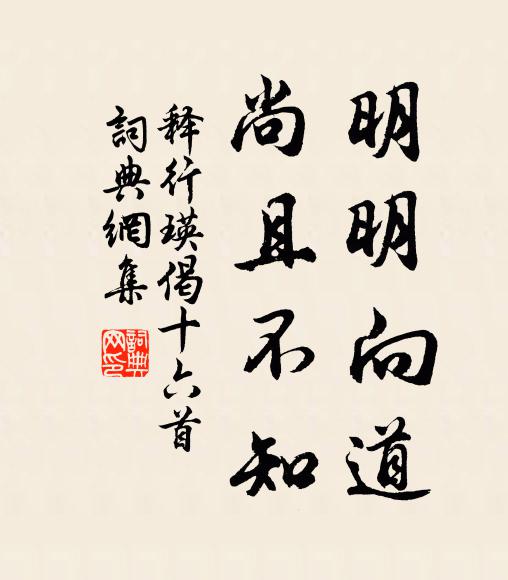 明明向道
尚且不知
释行瑛偈十六首
詞典網集
詞典网印